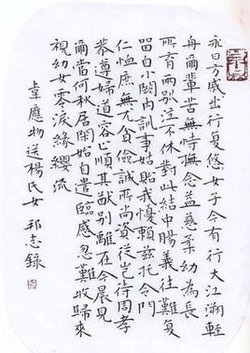 永日方慼出行復悠女子今有行大江溯輕
舟爾輩苦無恃撫念益慈柔幼為長
所育兩別泣不休對此結中腸義往難復
留自小闕內訓事姑貽我憂賴茲托令門
仁恤庶無尤貧儉誠所尚資從豈待周孝
恭遵婦道容止順其猷別離在今晨見
爾當何秋居閑始自遣臨感忽難收歸來
視幼女零淚緣纓流
韋應物送楊氏女 志錄